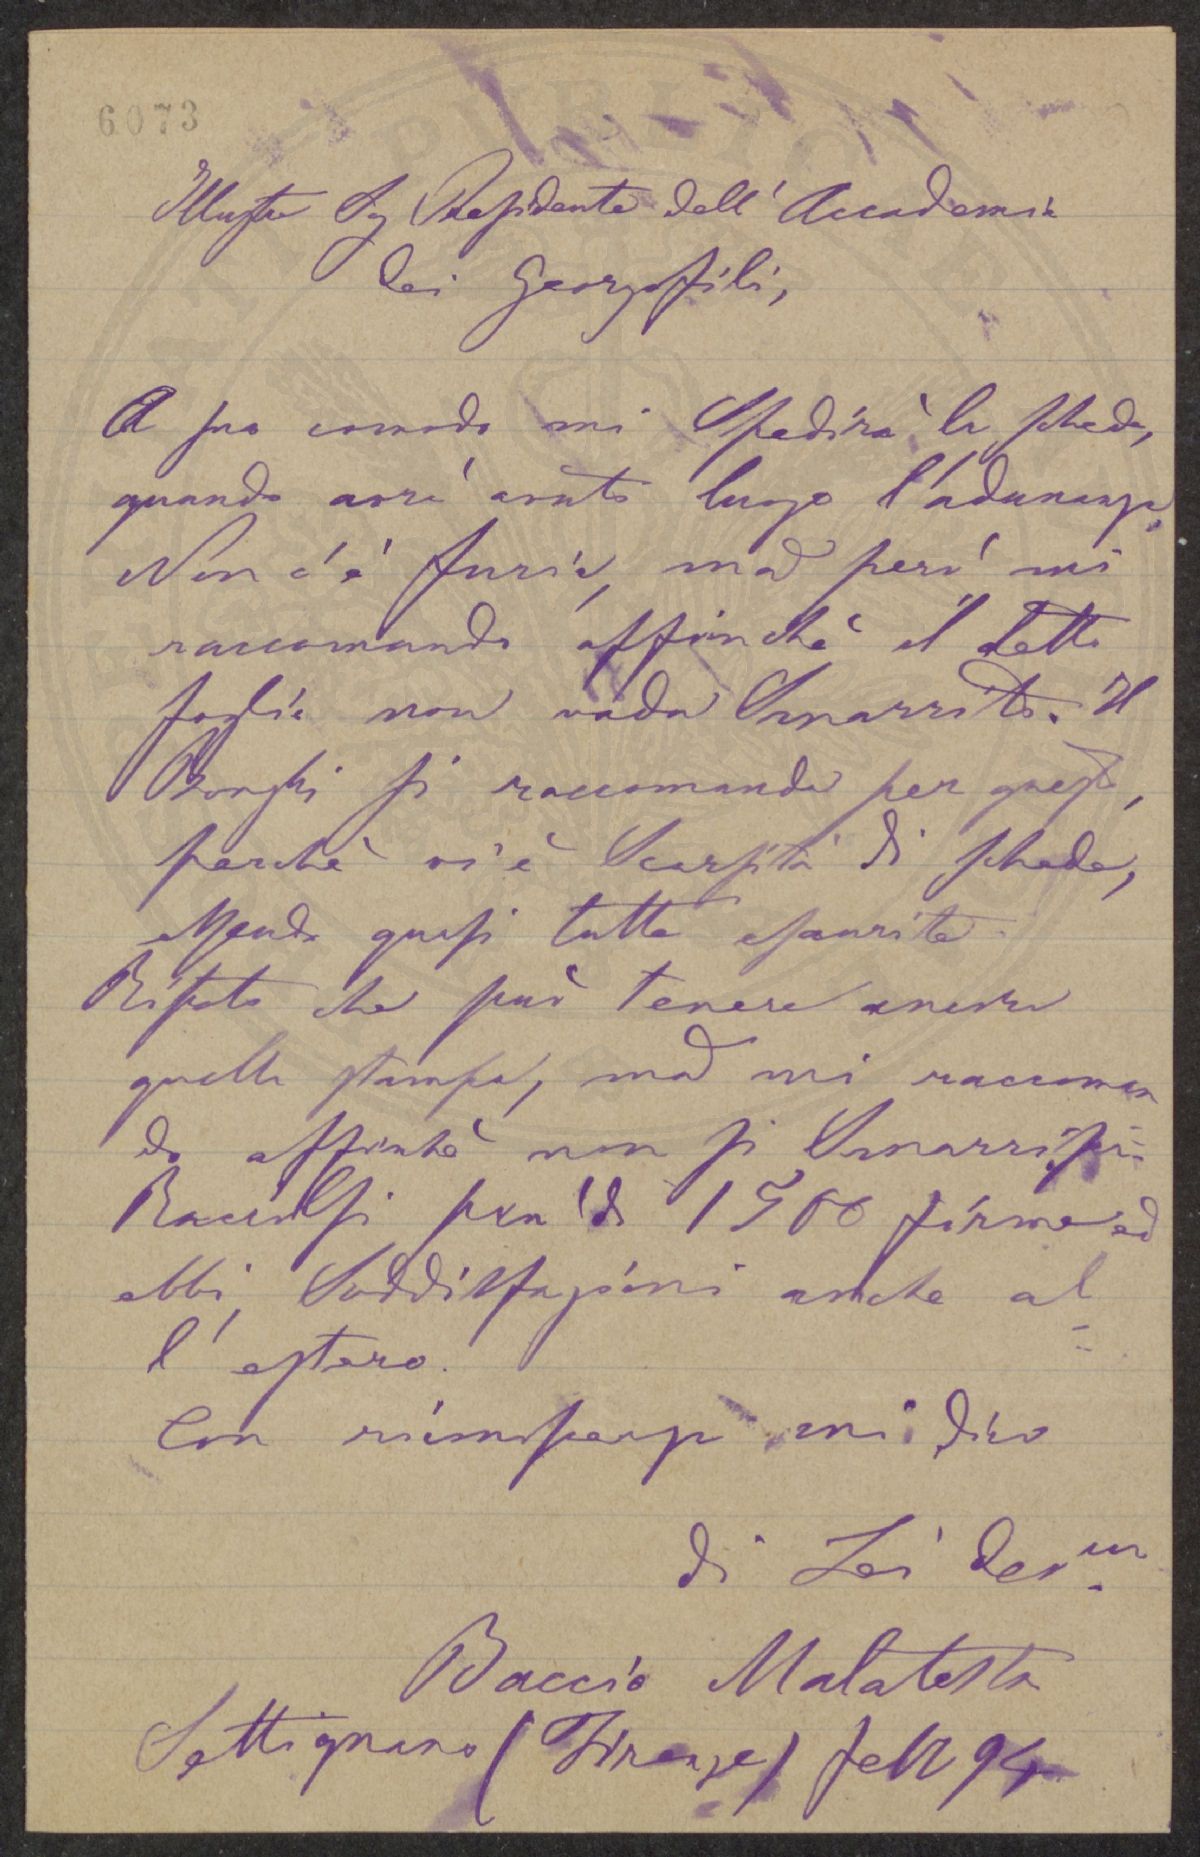 6073
Illustre Sig Presidente dell' Accademia
dei Georgofili,
A suo comodo mi spedirà la scheda,
quando avrà avuto luogo l'adunanza.
Non c'è furia, ma però mi
raccomando affinchè il detto
foglio non vada smarrito. Il
Bonghi si raccomanda per questo,
perchè vi è scarsità di schede,
essendo quasi tutte esaurite.
Ripeto che può tenere ancora
quella stampa, ma mi raccoman
do affinchè non si smarrisca.
Raccolsi più di 1500 firme ed
ebbi soddisfazioni anche al-
l' estero.
Con riconoscenza mi dico
di Lei dev.mo
Baccio Malatesta
Settignano (Firenze) febb 94